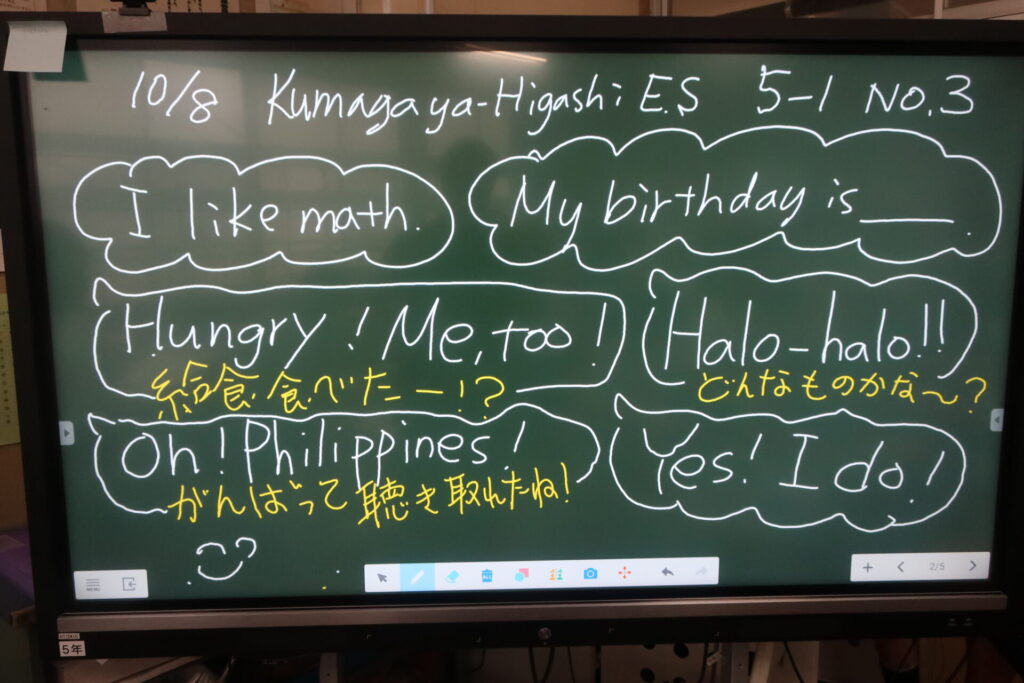 10/8 Kumagaya-Higashi E.S 5-1 No.3
I like math.
My birthday is ____.
Hungry! Me, too!
給食食べたー!?
Halo-halo!!
どんなものかな〜?
Oh! Philippines!
がんばって聴き取れたね!
Yes! I do!
MENU
ALL
2/5
5年